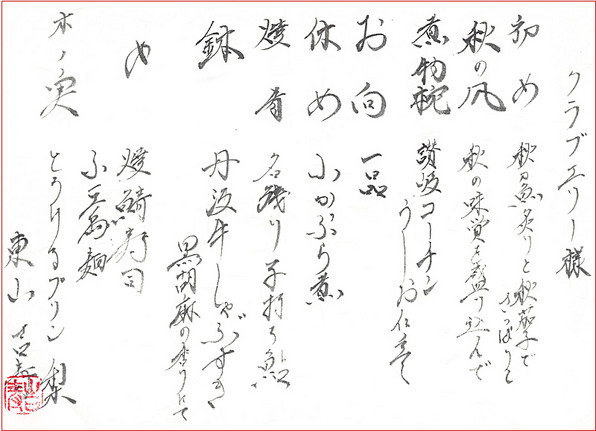 クラブエリー様
初め 秋の魚炙りと秋茄子で
さっぱりと
秋の風 秋の味覚を盛り込んで
煮物椀 讃岐コーチン
うしお仕立て
お向 一品
休め 小かぶら煮
焼肴 名残り子持ち鮎
鉢 丹波牛しゃぶすき
黒胡麻の香りにて
〆 焼鯖寿司
にゅう麺
木ノ実 とろけるプリン 梨
東山